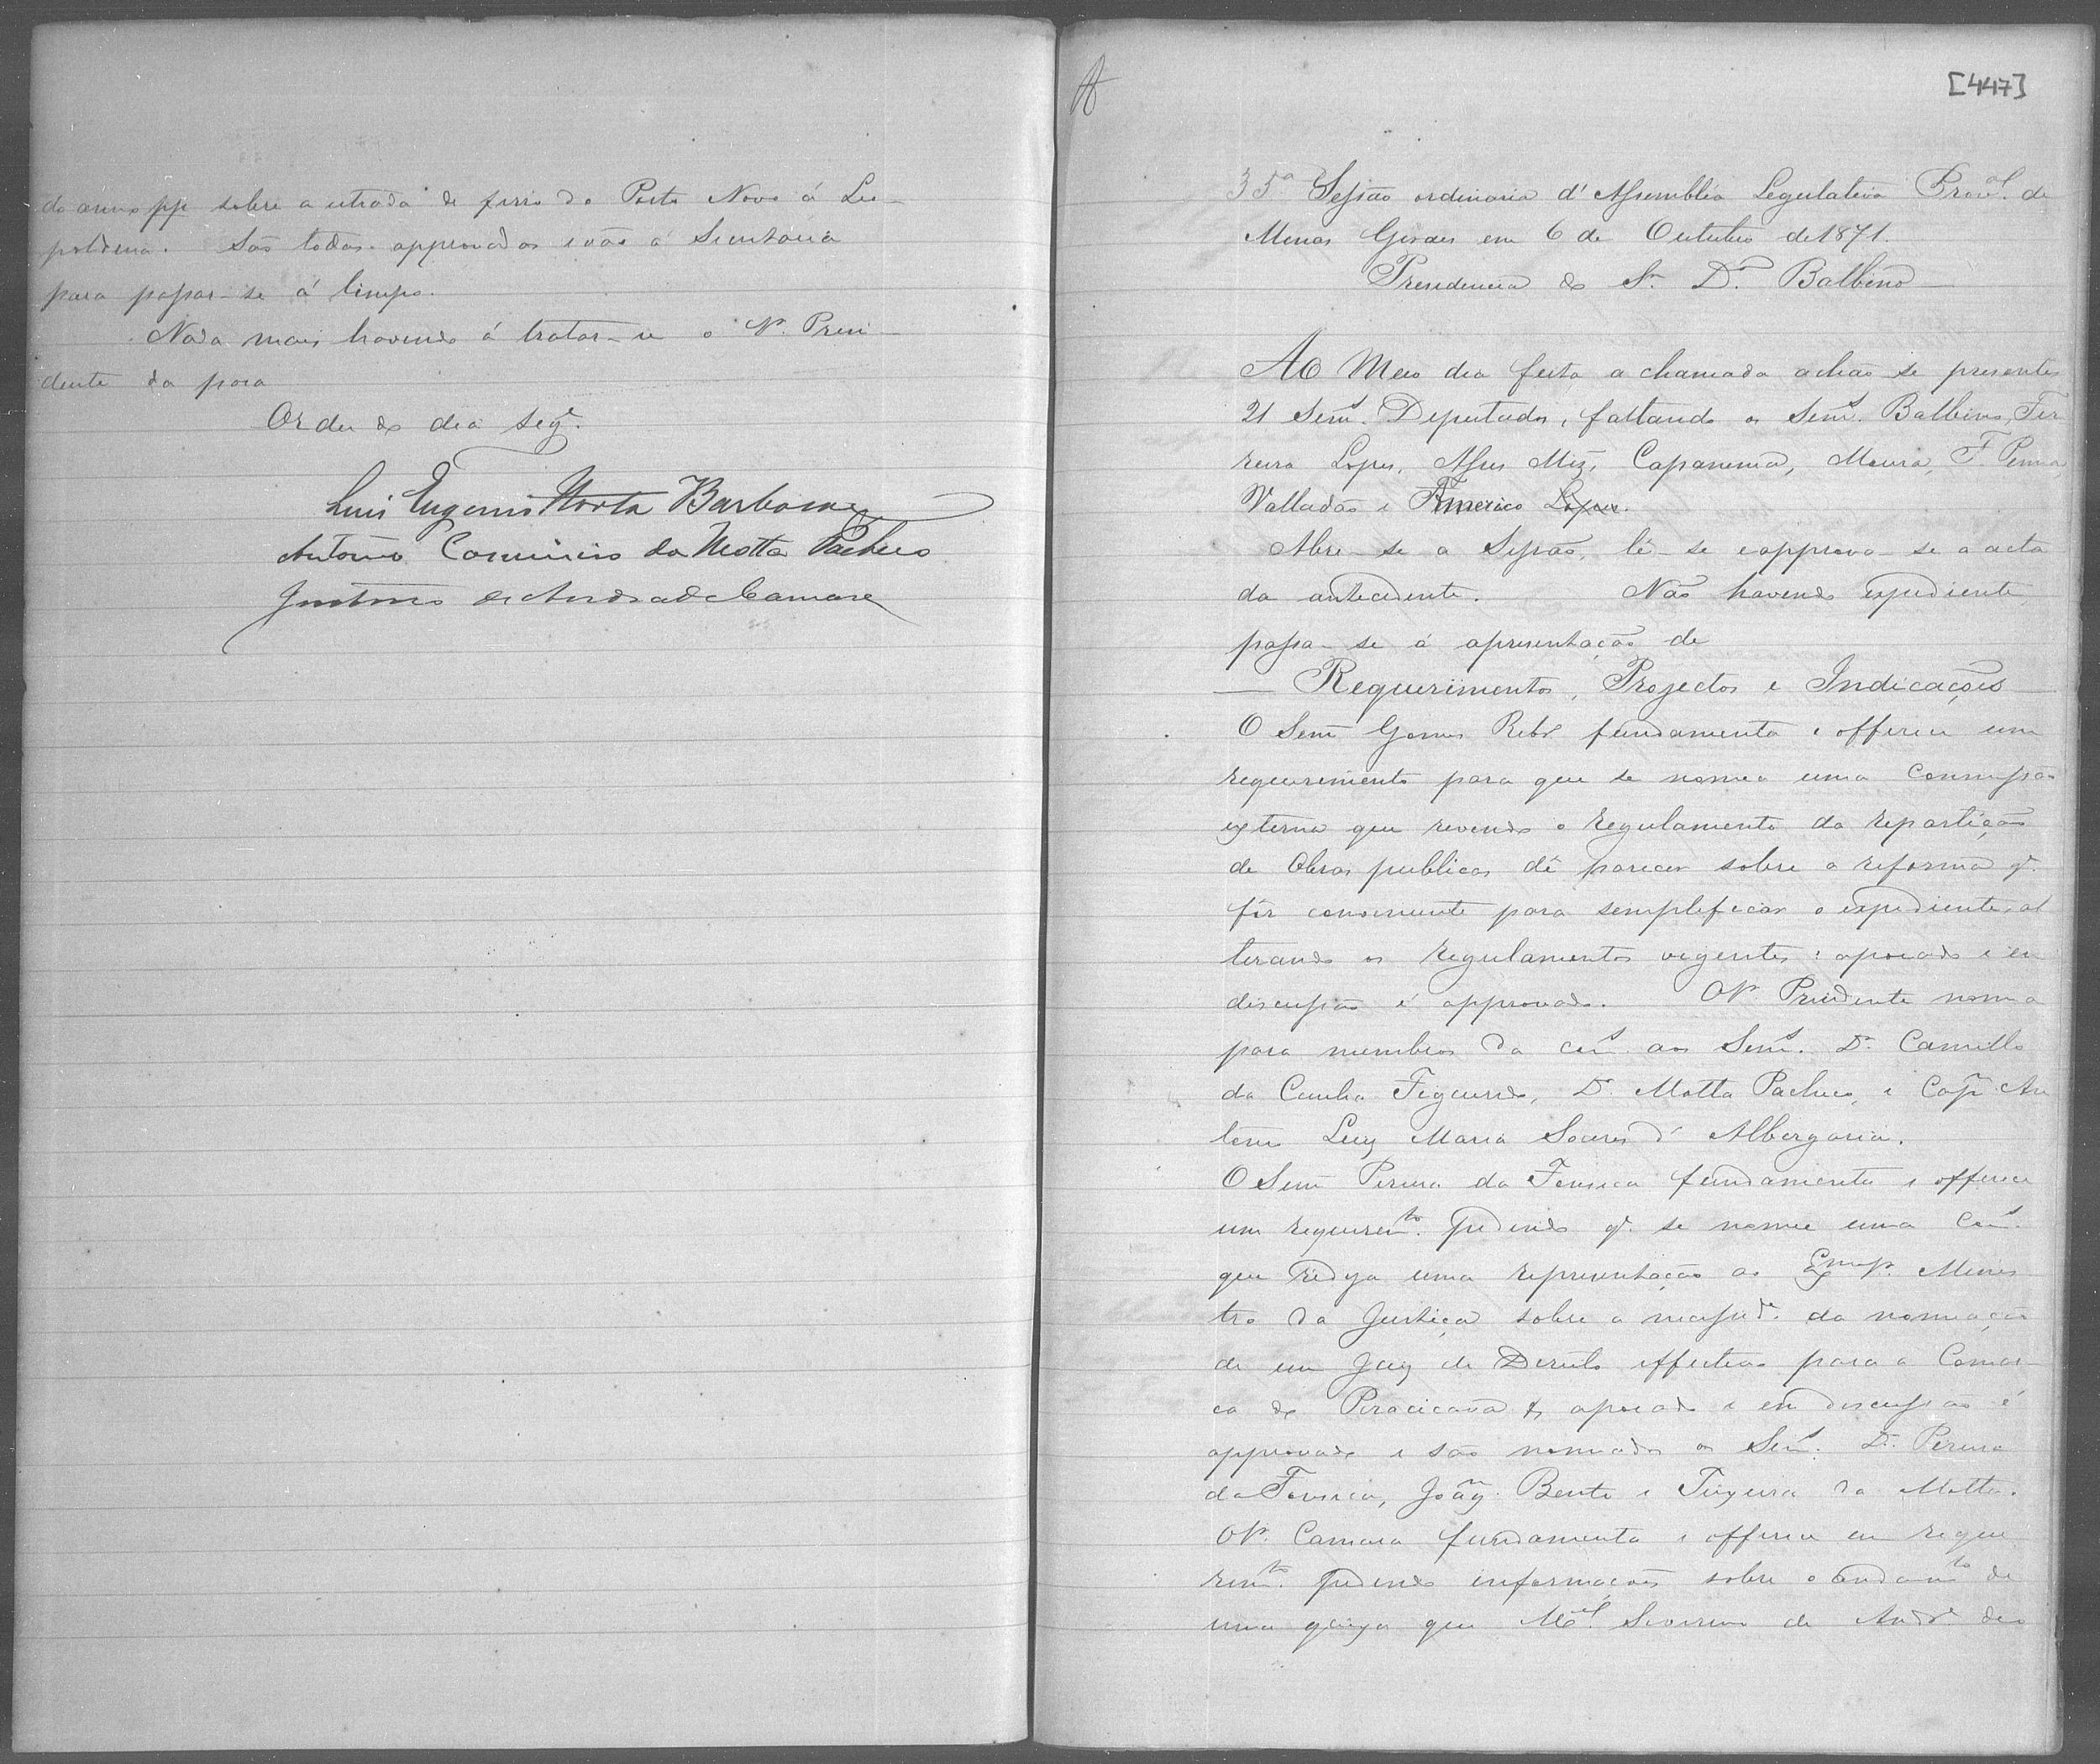 do anno pp sobre a estrada de ferro do Porto Novo á Leo-
poldina. São todas approvadas e vão á Secretaria
para passar-se á limpo.
Nada mais havendo á tratar-se o Sr. Presi-
dente da para
Ordem do dia seg.e
Luis Eugenio Horta Barbosa
Antonio Carneiro da Motta Pacheco
Antonio de Andrade Camara
[447]
35a Sessão ordinaria d'Assembléa Legislativa Prov.al de
Minas Geraes em 6 de Outubro de 1871.
Presidencia do Sr. Dr. Balbino
Ao Meio dia feita a chamada achão-se presentes
21 Senrs. Deputados, faltando os Senrs. Balbino, Fer
reira Lopes, Assis Miz, Capanema, Moura, F. Penna,
Valladão e Americo Lopes.
Abre-se a Sessão, lê-se e approva-se a acta
da antecedente. Não havendo expediente,
passa-se á apresentação de
Requerimentos, Projectos e Indicações
O Senr Gomes Rebo fundamenta e offerece um
requerimento para que se nomea uma Commissão
externa que revendo o regulamento da repartição
de Obras publicas dê parecer sobre a reforma q.
fôr conveniente para simplificar o expediente, al
terando os regulamentos vigentes: apoiado e em
discussão é approvado. O Sr. Presidente nomea
para membros da com. aos Senrs. Dr. Camillo
da Cunha Figueiredo, Dr. Motta Pacheco, e Cap. An
tonio Luiz Maria Soares d'Albergaria.
O Senr Pereira da Fonseca fundamenta e offerece
um requerim.to pedindo q. se nomee uma Com.
que redija uma representação ao Exmo Sr. Minis
tro da Justiça sobre a necessid.e da nomeação
de um Juiz de Direito effectivo para a Comar-
ca de Piracicava & apoiado e em discussão é
approvado e são nomeados os Senrs. Dr. Pereira
da Fonseca, Joaq.m Bento e Teixeira da Motta.
O Sr. Camara fundamenta e offerece um reque
rim.to pedindo informações sobre o andam.to de
uma queixa que M.el Severino de Andr.e deo